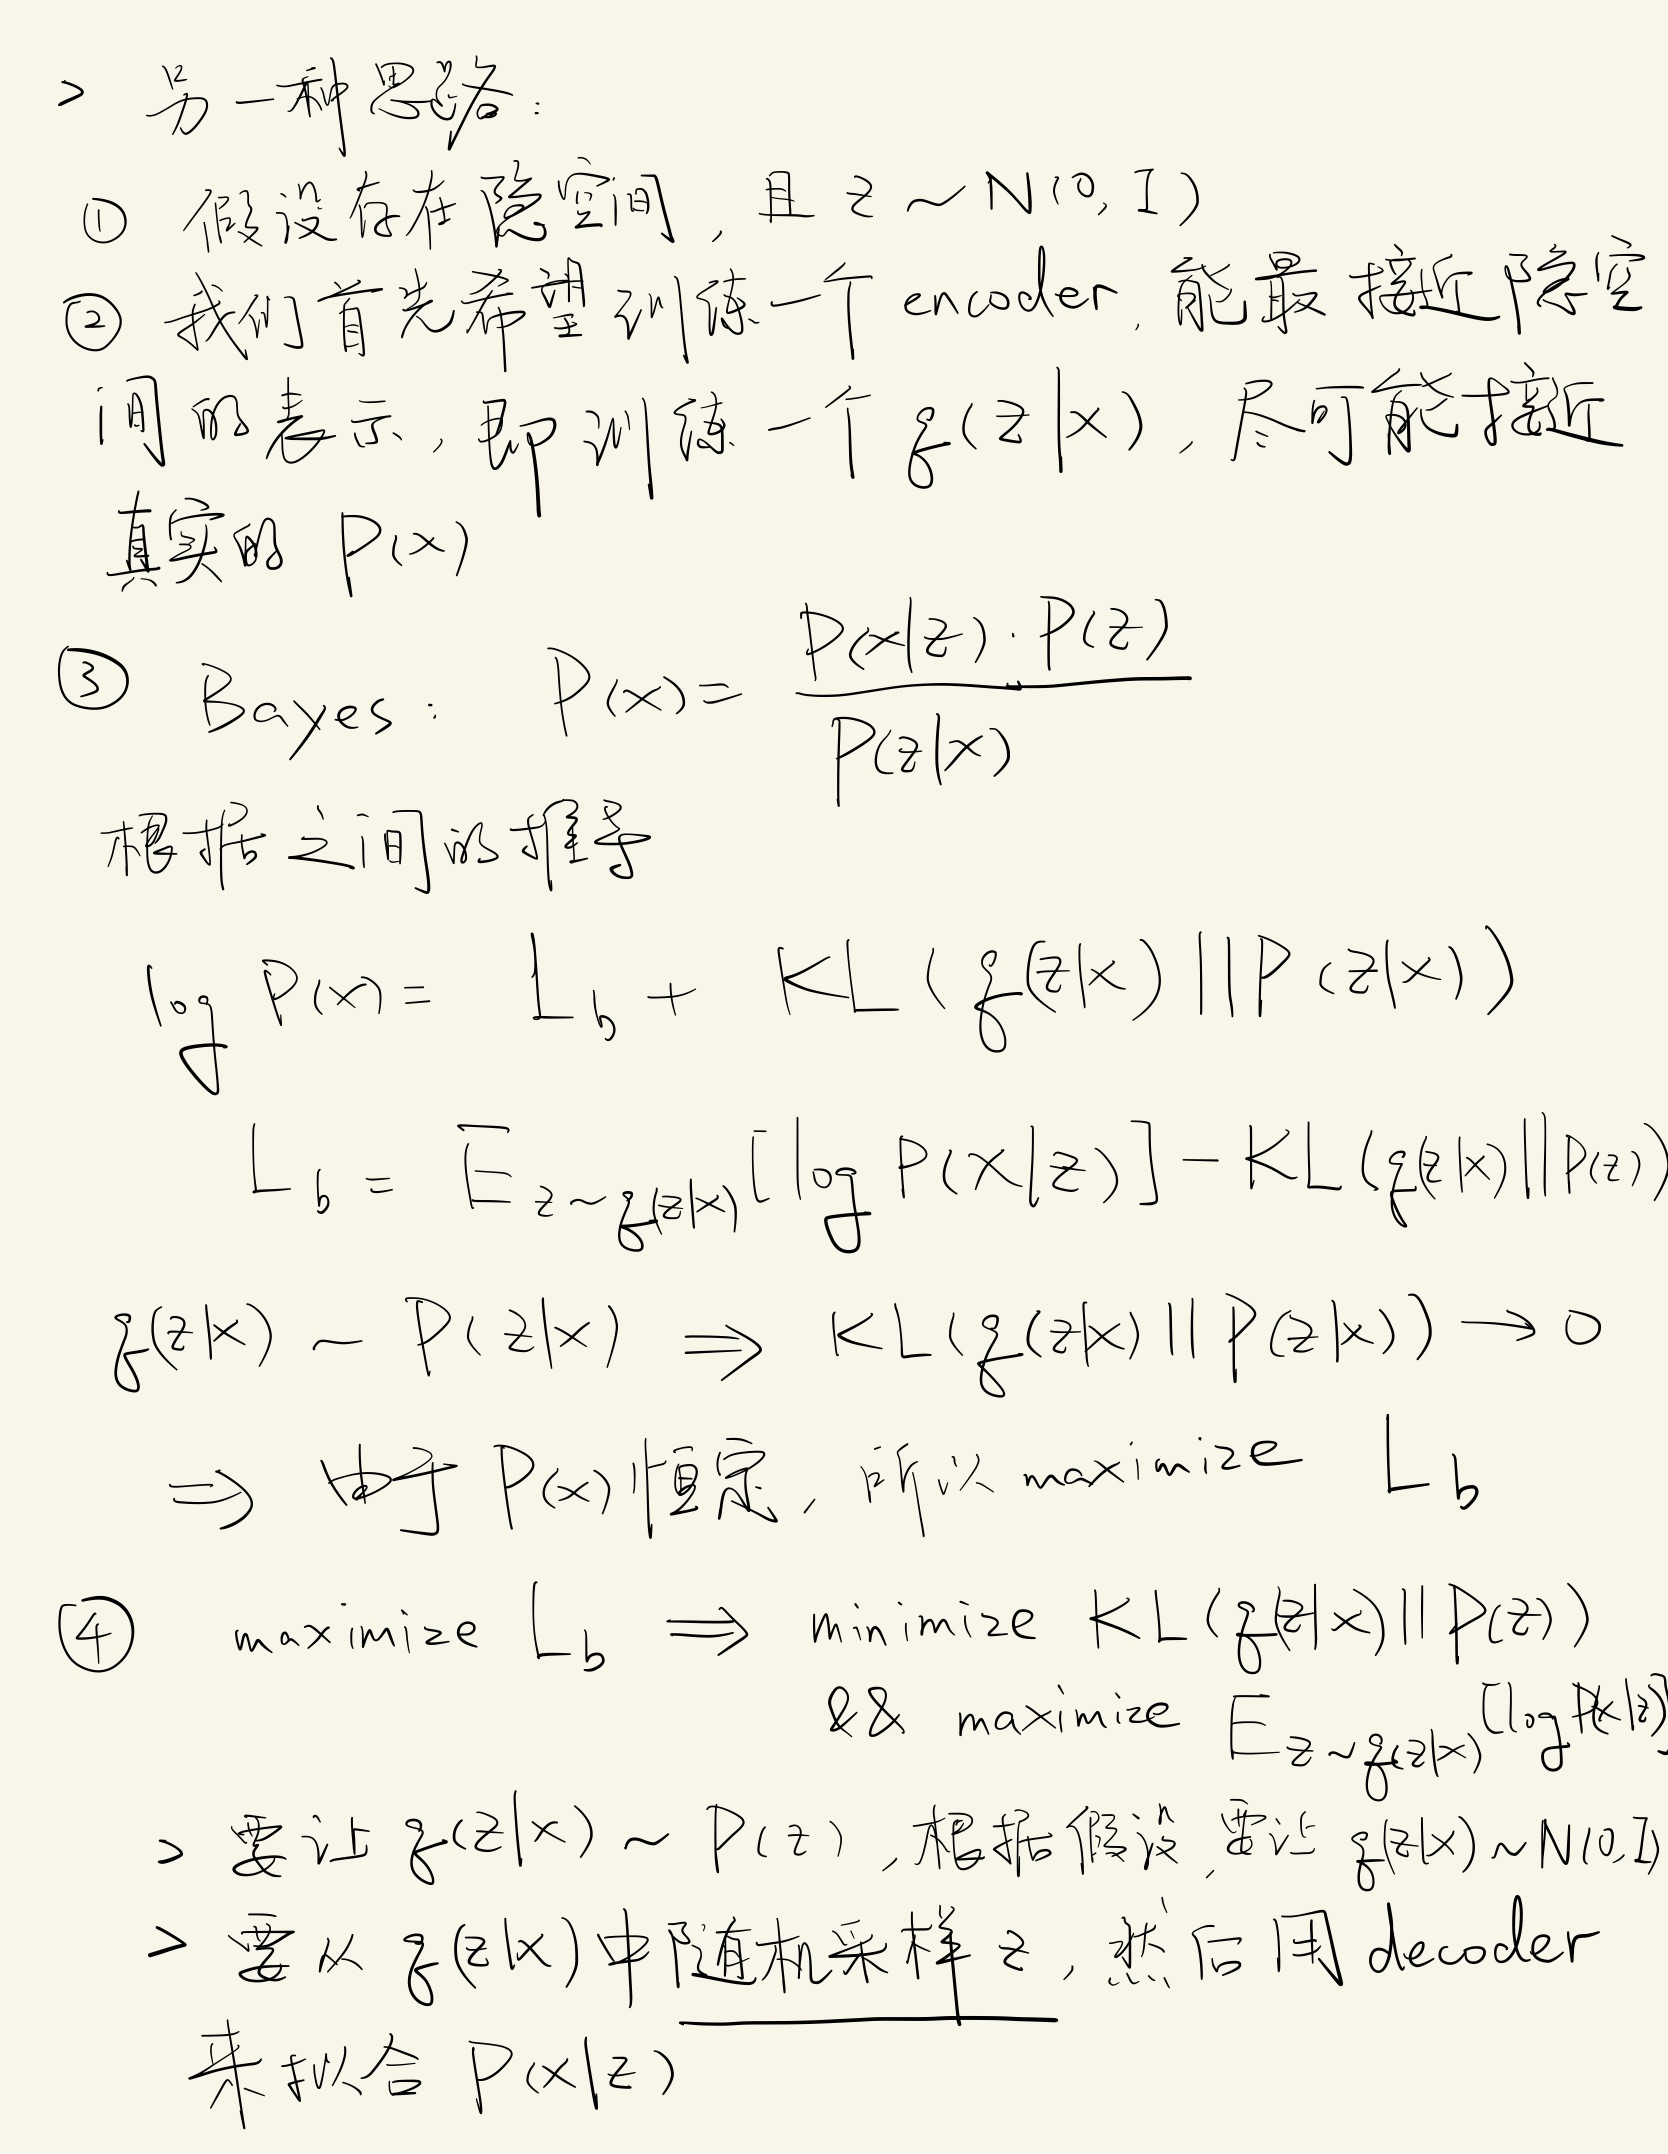 > 另一种思路:
① 假设存在隐空间, 且 z ~ N(0, I)
② 我们首先希望训练一个 encoder, 能最接近隐空
间的表示, 即训练一个 q(z|x), 尽可能接近
真实的 P(x)
③ Bayes: P(x) = P(x|z)·P(z) / P(z|x)
根据之间的推导
log P(x) = L_b + KL(q(z|x)||P(z|x))
L_b = E_{z~q(z|x)}[log P(X|z)] - KL(q(z|x)||P(z))
q(z|x) ~ P(z|x) ⇒ KL(q(z|x)||P(z|x)) → 0
⇒ 由于 P(x) 恒定, 所以 maximize L_b
④ maximize L_b ⇒ minimize KL(q(z|x)||P(z))
&& maximize E_{z~q(z|x)}[log P(x|z)]
> 要让 q(z|x) ~ P(z), 根据假设, 要让 q(z|x) ~ N(0, I)
> 要从 q(z|x) 中随机采样 z, 然后用 decoder
来拟合 P(x|z)